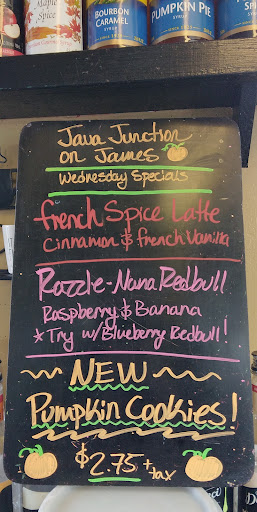 Maple
Spice
BOURBON
CARAMEL
SYRUP
PUMPKIN PIE
SYRUP
SPICE
SYRUP
Java Junction
on James
Wednesday Specials
French Spice Latte
Cinnamon & French Vanilla
Razzle-Nana Redbull
Raspberry & Banana
* Try w/Blueberry Redbull!
~ NEW ~
Pumpkin Cookies!
$2.75 + tax